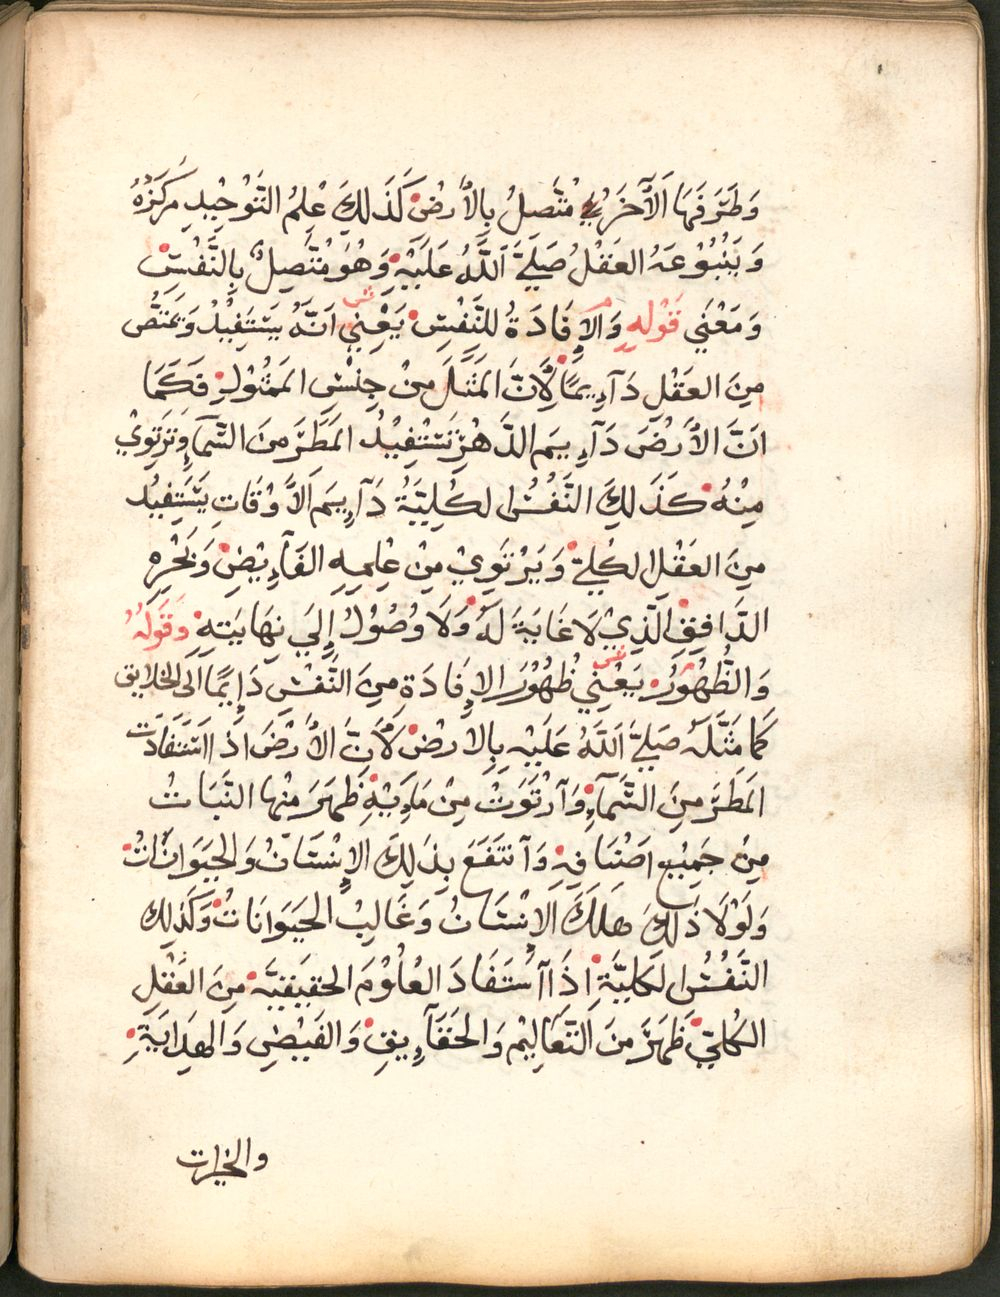 وَطَرَفَهَا الَآخَرُ مُتَّصِلُ بِالأَرْضِ كَذَلِكَ عِلْمُ التَّوْحِيدِ مَركَزُهُ
وَيَنْبُوْعَهُ العَقْلُ صَلَّى اللَّهُ عَلَيْهِ وَهُوَ مُتَّصِلٌ بِالنَّفْسِ
وَمَعْنَي قَوْلِهِ وَالإِفَادَةُ لِلنَّفْسِ يَعْنِي انَّهُ يَسْتَفِيْدُ وَيَمْتَصُّ
مِنَ العَقْلِ دَآيِمًا لِأَنَّ المَثَلَ مِنْ جِنْسِ المَمْثُوْلِ فَكَمَا
انَّ الأَرْضَ دَآيِم الدَّهْرِ تَسْتَفِيْدُ المَطَرَ مِنَ السَّمآءِ وَتَرْتَوِيْ
مِنْهُ كَذَلِكَ النَّفْسُ الكُلِيَّةُ دَآيِم الاَوْقَاتِ يَسْتَفِيْد
مِنَ العَقْلِ الكُلِيّ وَيَرْتَوِيْ مِنْ عِلْمِهِ الفَآيِضِ وَبَحْرِهِ
الدَّافِقِ الَّذِيْ لَا غَايَةَ لَهُ وَلَا وُصُوْلُ إِلَي نِهَايَتِهِ وَقَولُهُ
وَالظُّهُوْرُ يَعْنِي ظُهُوْرَ الإِفَادَةِ مِنَ النَّفْسِ دَايِمًا الى الخلايق
كَمَا مَثَّلَهُ صَلَّى اَللَّهُ عَلَيْهِ بِالارْضِ لأَنَّ الأَرْضَ اذَا اسْتَفَادَت
المَطَرَ مِنَ السَّمَآءِ وَآرْتَوَتْ مِنْ مَآيِهِ ظَهَرَ مِنْهَا النَّبَاتُ
مِنْ جَمِيْعِ اصْنَافِهِ وَآنتَفَعَ بِذَلِكَ الإِنْسَانُ وَالحَيَوَانَاتُ
وَلَوْلَا ذَلِكَ هَلَكَ الإِنْسَانُ وَغَالِبُ الحَيَوانَاتْ وَكَذَلِكَ
النَّفْسُ الكُليَّةُ اِذَا اسْتَفَادَ العُلُوْمَ الحَقِيْقِيَّه مِنَ العَقْلِ
الكُلِيّ ظَهَرَ مِنَ التَّعَالِيْمِ وَالحَقَآيِقِ وَالفَيْضِ وَالهِدَايَةِ
والخيرات